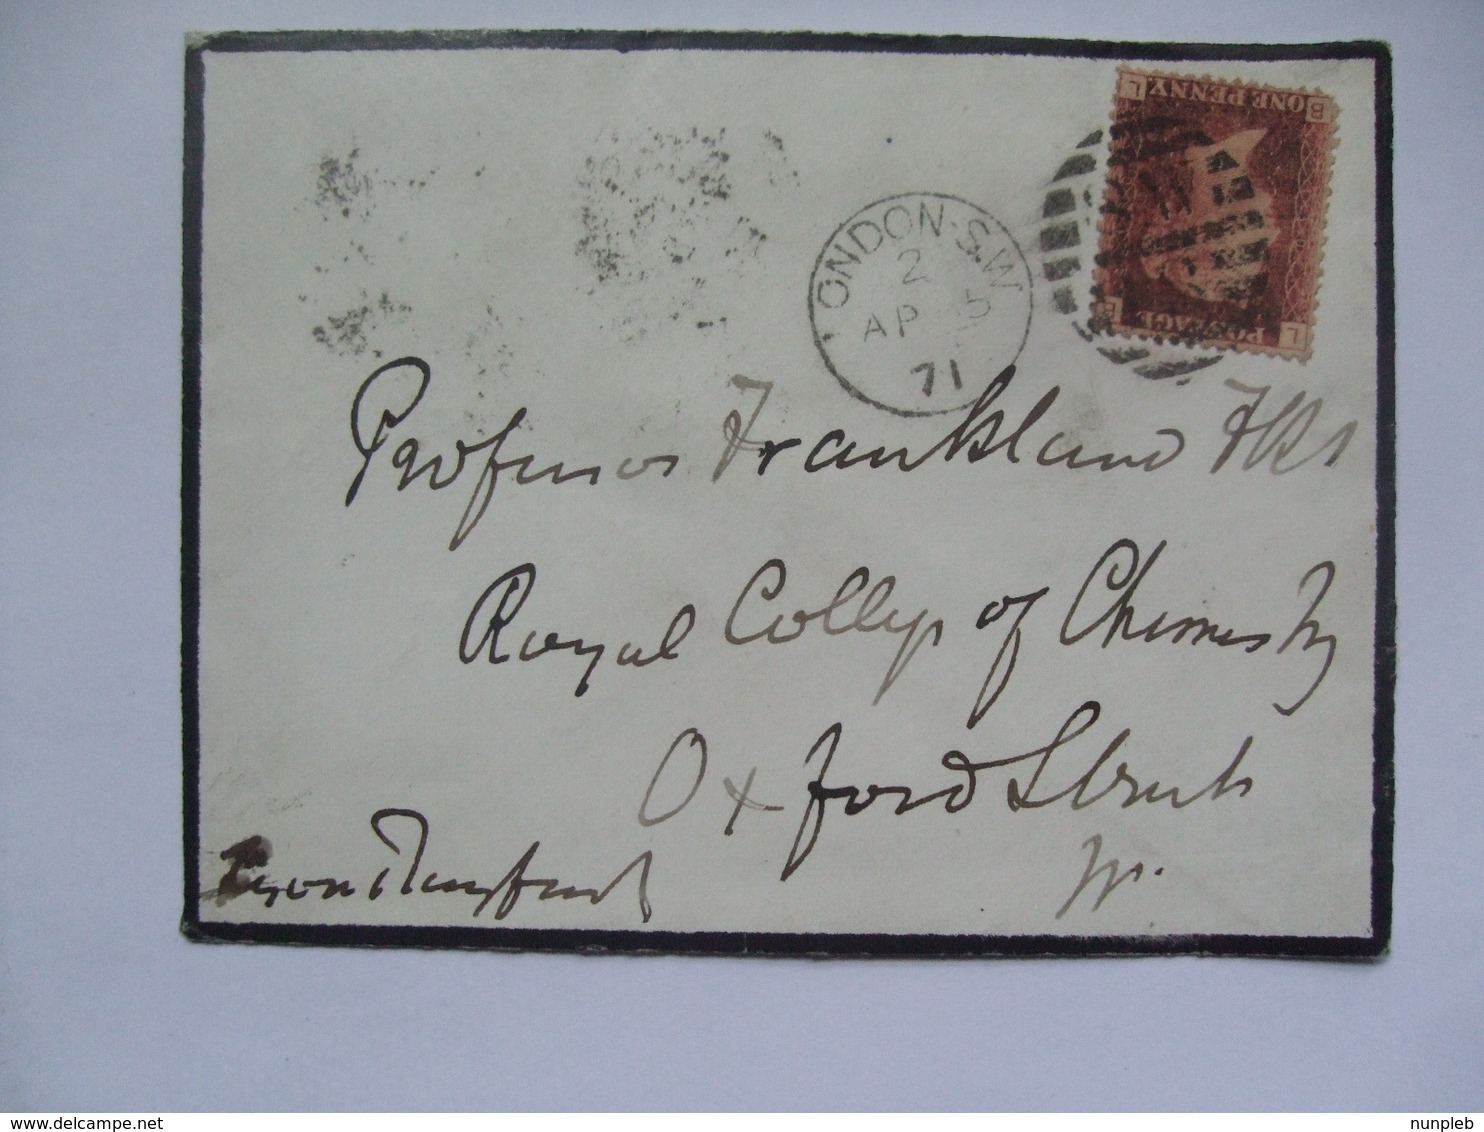 ONE PENNY
B
L
POSTAGE
L
LONDON·S.W
2
AP 5
71
S.W
Professor Frankland FRS
Royal College of Chemistry
Oxford Street
W.
Lyon Playfair
delcampe.net
nunpleb